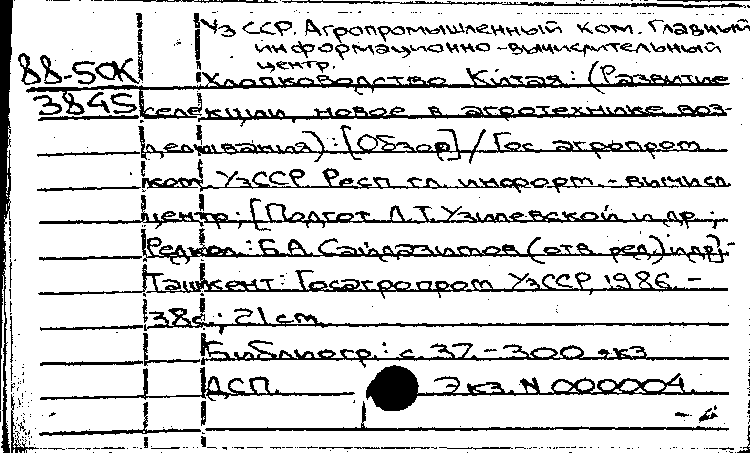 УзССР. Агропромышленный ком. Главный
информационно-вычислительный
центр.
88-50К
Хлопководство Китая: (Развитие
3845
селекции, новое в агротехнике воз-
делывания): [Обзор] / Гос. агропром.
ком. УзССР Респ. гл. информ.-вычисл.
центр; [Подгот. Л.Т. Узилевской и др.;
Редкол.: Б.А. Сайдазимов (отв. ред.) и др].-
Ташкент: Госагропром УзССР, 1986. -
38с.; 21 cm.
Библиогр.: с. 37. - 300 экз
ДСП. Экз. N 000004.